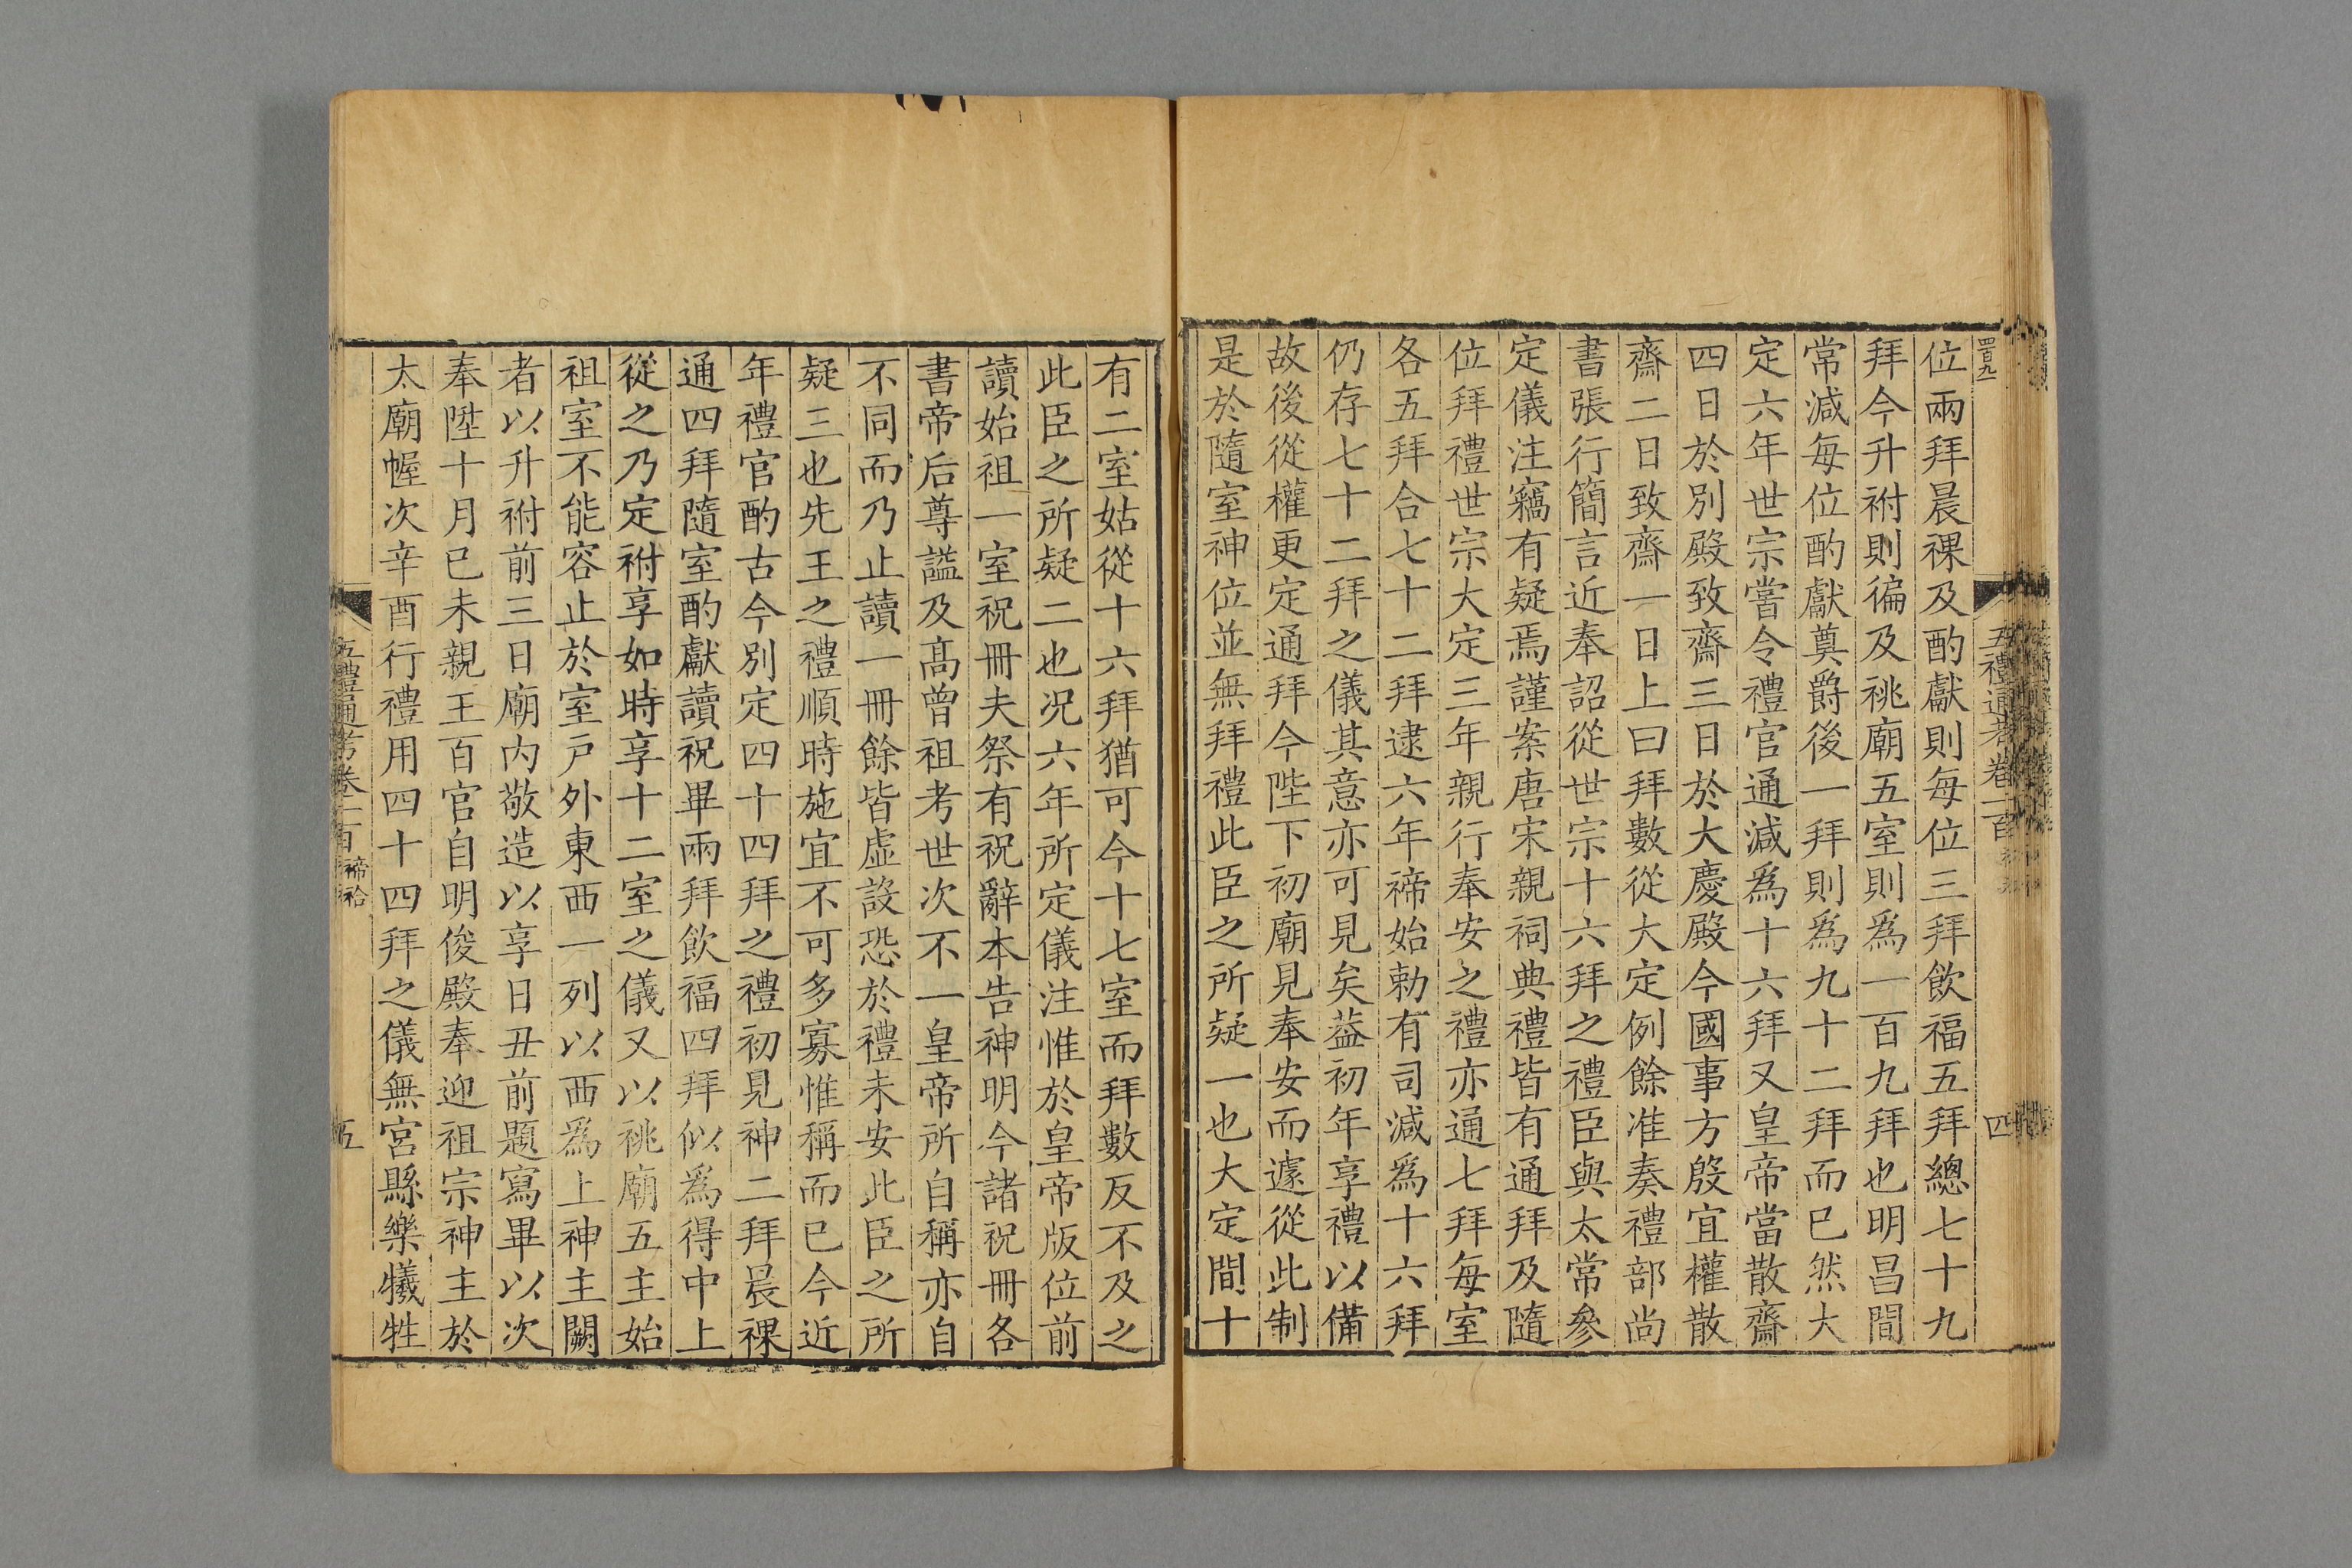 四百九
五禮通考卷一百
四
位兩拜晨祼及酌獻則每位三拜飲福五拜總七十九
拜今升祔則徧及祧廟五室則爲一百九拜也明昌間
常減每位酌獻奠爵後一拜則爲九十二拜而已然大
定六年世宗嘗令禮官通減爲十六拜又皇帝當散齋
四日於別殿致齋三日於大慶殿今國事方殷宜權散
齋二日致齋一日上曰拜數從大定例餘准奏禮部尚
書張行簡言近奉詔從世宗十六拜之禮臣與太常參
定儀注竊有疑焉謹案唐宋親祠典禮皆有通拜及隨
位拜禮世宗大定三年親行奉安之禮亦通七拜每室
各五拜合七十二拜逮六年禘始勅有司減爲十六拜
仍存七十二拜之儀其意亦可見矣葢初年享禮以備
故後從權更定通拜今陛下初廟見奉安而遽從此制
是於隨室神位並無拜禮此臣之所疑一也大定間十
有二室姑從十六拜猶可今十七室而拜數反不及之
此臣之所疑二也况六年所定儀注惟於皇帝版位前
讀始祖一室祝冊夫祭有祝辭本告神明今諸祝冊各
書帝后尊謚及髙曾祖考世次不一皇帝所自稱亦自
不同而乃止讀一冊餘皆虛設恐於禮未安此臣之所
疑三也先王之禮順時施宜不可多寡惟稱而已今近
年禮官酌古今別定四十四拜之禮初見神二拜晨祼
通四拜隨室酌獻讀祝畢兩拜飲福四拜似爲得中上
從之乃定祔享如時享十二室之儀又以祧廟五主始
祖室不能容止於室戸外東西一列以西爲上神主闕
者以升祔前三日廟内敬造以享日丑前題寫畢以次
奉陞十月已未親王百官自明俊殿奉迎祖宗神主於
太廟幄次辛酉行禮用四十四拜之儀無宮縣樂犧牲
五禮通考卷一百 禘祫
五